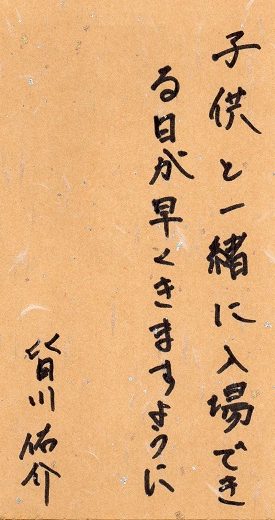 子供と一緒に入場でき
る日が早くきますように
皆川佑介